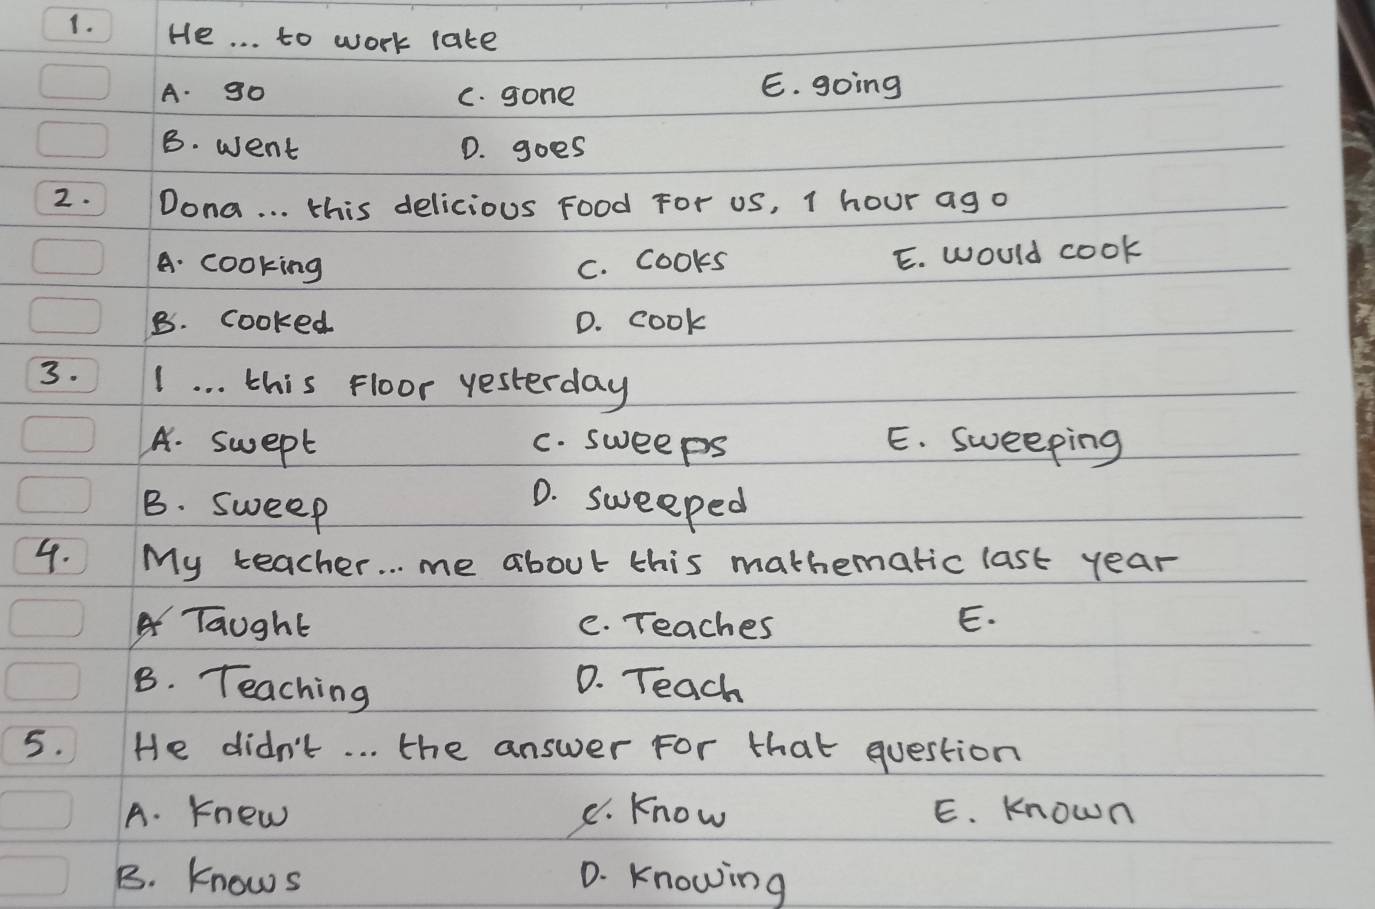 1. He ... to work late
A. go C. gone E. going
B. went D. goes
2. Dona ... this delicious food for us, 1 hour ago
A. cooking C. cooks E. would cook
B. cooked D. cook
3. I ... this floor yesterday
A. swept C. sweeps E. sweeping
B. sweep D. sweeped
4. My teacher... me about this mathematic last year
A Taught C. Teaches E.
B. Teaching D. Teach
5. He didn't ... the answer for that question
A. knew C. know E. known
B. knows D. knowing